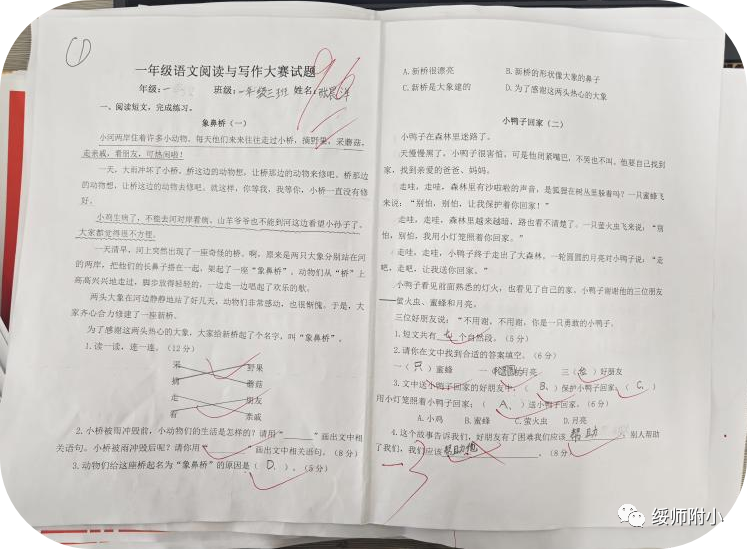 ①
一年级语文阅读与写作大赛试题
96
年级：一 班级：一年级三班 姓名：
一、阅读短文，完成练习。
象鼻桥（一）
小河两岸住着许多小动物，每天他们来来往往走过小桥，摘野果，采蘑菇，
走亲戚，看朋友，可热闹啦！
一天，大雨冲坏了小桥。桥这边的动物想，让桥那边的动物来修吧。桥那边
的动物想，让桥这边的动物去修吧。就这样，你等我，我等你，小桥一直没有修
好。
小鸡生病了，不能去河对岸看病，山羊爷爷也不能到河这边看望小孙子了。
大家都觉得很不方便。
一天清早，河上突然出现了一座奇怪的桥。啊，原来是两只大象分别站在河
的两岸，把他们的长鼻子搭在一起，架起了一座“象鼻桥”。动物们从“桥”上
高高兴兴地走过，脚步放得轻轻的，一边走一边唱起了欢乐的歌。
两头大象在河边静静地站了好几天，动物们非常感动，也很惭愧。于是，大
家齐心合力修建了一座新桥。
为了感谢这两头热心的大象，大家给新桥起了个名字，叫“象鼻桥”。
1.读一读，连一连。（12分）
采 野果
摘 蘑菇
走 朋友
看 亲戚
2.小桥被雨冲毁前，小动物们的生活是怎样的？请用“______”画出文中相
关语句。小桥被雨冲毁后呢？请你用“ ”画出文中相关语句。（8分）
3.动物们给这座桥起名为“象鼻桥”的原因是（ D. ）。（5分）
A.新桥很漂亮 B.新桥的形状像大象的鼻子
C.新桥是大象建的 D.为了感谢这两头热心的大象
小鸭子回家（二）
小鸭子在森林里迷路了。
天慢慢黑了，小鸭子很害怕，可是他闭紧嘴巴，不哭也不叫。他要自己找到
家，找到亲爱的爸爸、妈妈。
走哇，走哇，森林里有沙啦啦的声音，是狐狸在树丛里躲着吗？一只蜜蜂飞
来说：“别怕，别怕，让我保护着你回家！”
走哇，走哇，森林里越来越暗，路也看不清楚了。一只萤火虫飞来说：“别
怕，别怕，我用小灯笼照着你回家。”
走哇，走哇，小鸭子终于走出了大森林。一轮圆圆的月亮对小鸭子说：“走
吧，走吧，让我送你回家。”
小鸭子看见前面熟悉的灯火，也看见了自己的家。小鸭子谢谢他的三位朋友
——萤火虫、蜜蜂和月亮。
三位好朋友说：“不用谢，不用谢，你是一只勇敢的小鸭子。
1.短文共有 七 个自然段。（5分）
2.请你在文中找到合适的答案填空。（6分）
一（只）蜜蜂 一（轮圆圆的）月亮 三（位）好朋友
3.文中送小鸭子回家的好朋友中，（ B、）保护小鸭子回家，（ C、）
用小灯笼照着小鸭子回家；（ A、）送小鸭子回家。（6分）
A.小鸡 B.蜜蜂 C.萤火虫 D.月亮
4.这个故事告诉我们，好朋友有了困难我们应该 帮助 ，别人帮助
了我们，我们应该 帮助他 。（8分）
-3
绥师附小